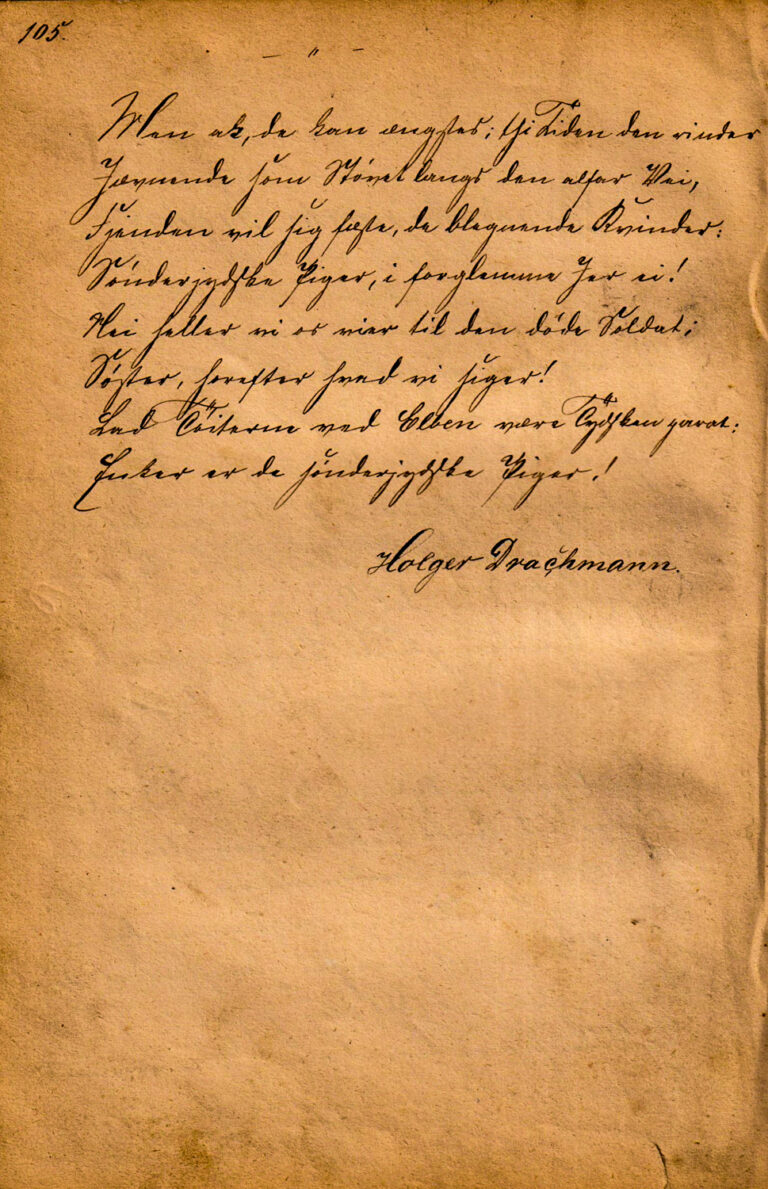 105.
— " —
Men ak, de kan ængstes; thi Tiden den rinder
Jævnende som Støvet langs den alfar Vei,
Fjenden vil sig fæste, de blegnende Kvinder:
Sønderjydske Piger, i forglemme Jer ei!
Nei heller vi os vier til den døde Soldat;
Søster, hørefter hvad vi siger!
Lad Töiterne ved Elben være Tydsken parat:
Enker er de sønderjydske Piger!
Holger Drachmann.